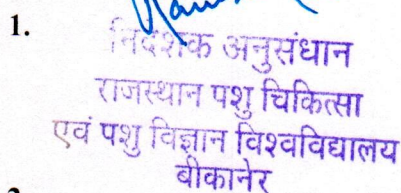 1.
निदेशक अनुसंधान
राजस्थान पशु चिकित्सा
एवं पशु विज्ञान विश्वविद्यालय
बीकानेर